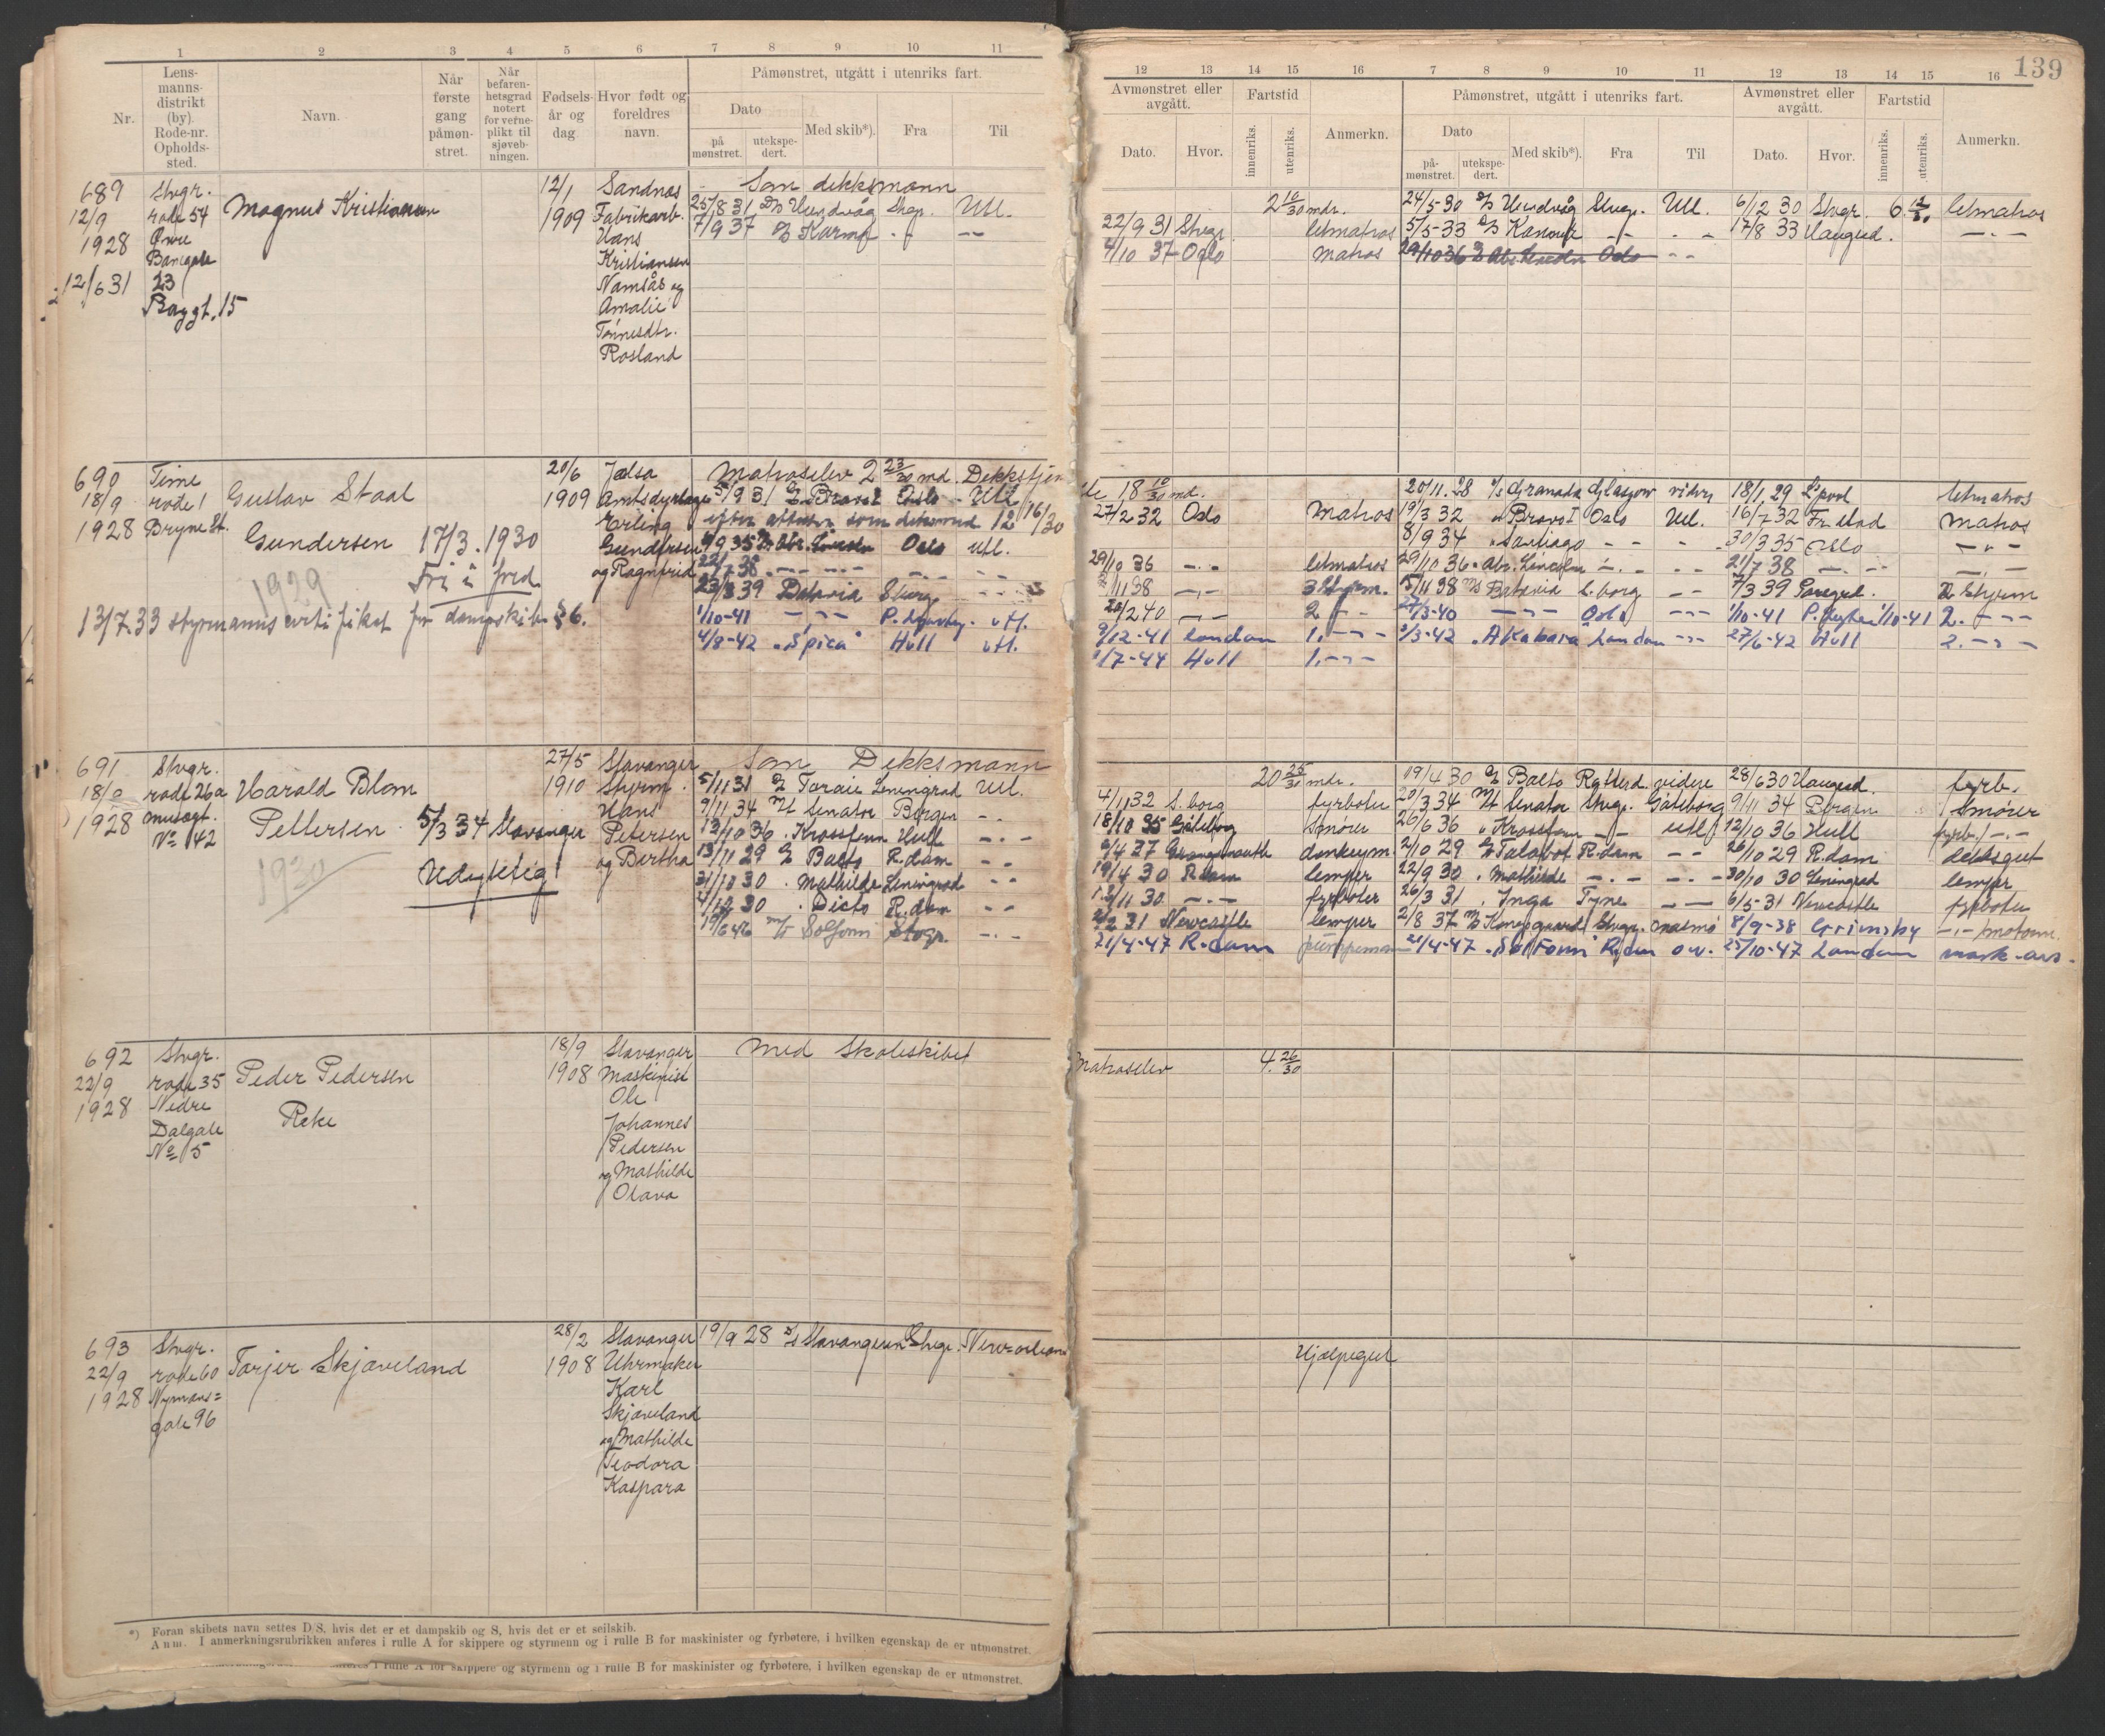 139
1 2 3 4 5 6 7 8 9 10 11
Nr.
Lens-
manns-
distrikt
(by).
Rode-nr.
Opholds-
sted.
Navn.
Når
første
gang
påmøn-
stret.
Når
befaren-
hetsgrad
notert
for verne-
plikt til
sjøveb-
ningen.
Fødsels-
år og
dag
Hvor født og
foreldres
navn.
Påmønstret, utgått i utenriks fart.
Dato
på
mønstret.
utekspe-
dert.
Med skib*).
Fra
Til
12 13 14 15 16 7 8 9 10 11 12 13 14 15 16
Avmønstret eller
avgått.
Dato.
Hvor.
Fartstid
innenriks.
utenriks.
Anmerkn.
Påmønstret, utgått i utenriks fart.
Dato
på-
mønstret.
utekspe-
dert.
Med skib*).
Fra
Til
Avmønstret eller
avgått.
Dato.
Hvor.
Fartstid
innenriks.
utenriks.
Anmerkn.
689
12/9
1928
12/6 31
Stvgr.
rode 54
Øvre
Banegate
23
Baggt. 15
Magnus Kristiansen
12/1
1909
Sandnes
Fabrikarb.
Hans
Kristiansen
Namsås og
Amalie
Tønnesdtr.
Rosland
Som dekksmann
25/8 31 D/S Hundvåg Stvgr. Utl.
7/9 37 Karmø - " - - -
2 10/30 mdr.
22/9 31 Stvgr. letmatros
4/10 37 Oslo matros
24/5-30 Hundvåg Stvgr. Utl. 6/12 30 Stvgr. 6 letmatros
5/5-33 - - 17/8 33 Haugesd. - " -
29/10 36 Abr. Lincoln Oslo - -
690
18/9
1928
Time
rode 1
Bryne St.
Gustav Staal
Gundersen
1929
17/3. 1930
Fri i fred.
13/7 33 styrmanns certifikat for dampskib § 6.
20/6
1909
Jelsa
Amtsdyrlæge
Erling
Gundersen
og Ragnfrid
Matroselev 2 23/30 md. Dekkstjen
5/9 31 Bravo I Oslo - Utl.
efter attester som dekksmand 12 16/30
9 35 Abr. Lincoln Oslo utl.
38 - " - - " - - " -
23/8 39 Batavia
1/10-41 - " - P. utl.
4/8-42 "Spica" Hull utl.
18 10/30 md.
27/2 32 Oslo Matros
29/10 36 - " - letmatros
11 38 - " - 3 Styrm.
2 40 - " - 2 - " -
9/12-41 London 1. - " -
7-44 Hull 1. - " -
20/11. 28 Granada Glasgow videre 18/1, 29 L'pool letmatros
19/3 32 Bravo I Oslo Utl. 16/7 32 Fr.stad Matros
8/9 34 Santiago - - - 30/3 35 Oslo - " -
29/10 36 Abr. Lincoln - " - - - 21/7 38 - " - - " -
5/11 38 M/S Batavia S.borg - - 7/3 39 2 Styrm
27/3-40 - " - Oslo - " - 1/10-41 2. - " -
3-42 "Akabara London - " - 27/6-42 Hull 2. - " -
691
18/9
1928
Stvgr.
rode 26a
Musegt.
No 42
Harald Blom
Pettersen
1930
5/3 34 Stavanger
Udyktig
27/5
1910
Stavanger
Styrm.
Hans
Petersen
og Bertha
Som Dekksmann
5/11 31 Leningrad Utl.
9/11 34 M/T Senator Bergen - -
13/10 36 Krossfonn Hull - " -
13/11 29 Balto R.dam - -
31/10 30 Mathilde Leningrad - -
4/12 30 Dicto R.dam - -
19/6 46 M/T Solfonn Stvgr. - " -
20 25/30 mdr.
4/11 32 S.borg fyrbøter
18/10 35 Göteborg Smører
4 37 Grangemouth donkeym.
19/4 30 R.dam lemper
11 30 - " - fyrbøter
2 31 Newcastle lemper
21/4-47 R.dam pumpemann
19/4 30 Balto Rotterd. videre 28/6 30 Haugesd. fyrb.
20/3 34 M/T Senator Stvgr. Göteborg 9/11 34 Bergen Smører
26/6 36 Krossfonn - " - utl 12/10 36 Hull fyrb. / - " -
2/10 29 Talabot R.dam - - 26/10 29 R.dam dekksgut
22/9 30 Mathilde - " - - " - 30/10 30 Leningrad lemper
26/3 31 Inga Tyne - " - 6/5-31 Newcastle fyrbøter
2/8 37 M/S Kongsgaard Stvgr. 8/9-38 Grimsby - " - / motorm.
21/4-47 "Solfonn" R.dam 25/10-47 London
692
22/9
1928
Stvgr.
rode 35
Nedre
Dalgate
No 5
Peder Pedersen
Reke
18/9
1908
Stavanger
Maskinist
Ole
Johannes
Pedersen
og Mathilde
Olava
Med Skoleskibet
Matroselev 4. 26/30
693
22/9
1928
Stvgr.
rode 60
Nymans=
gate 96
Tarjer Skjæveland
28/2
1908
Stavanger
Uhrmaker
Karl
Skjæveland
og Mathilde
Teodora
Kaspara
19/9 28 Stavangeren Stvgr. New-orleans
Hjælpegut
*) Foran skibets navn settes D/S. hvis det er et dampskib og S, hvis det er et seilskib.
Anm. I anmerkningsrubrikken anføres i rulle A for skippere og styrmenn og i rulle B for maskinister og fyrbøtere, i hvilken egenskap de er utmønstret.
rulle A for skippere og styrmenn og i rulle B for maskinister og fyrbøtere, i hvilken egenskap de er utmønstret.